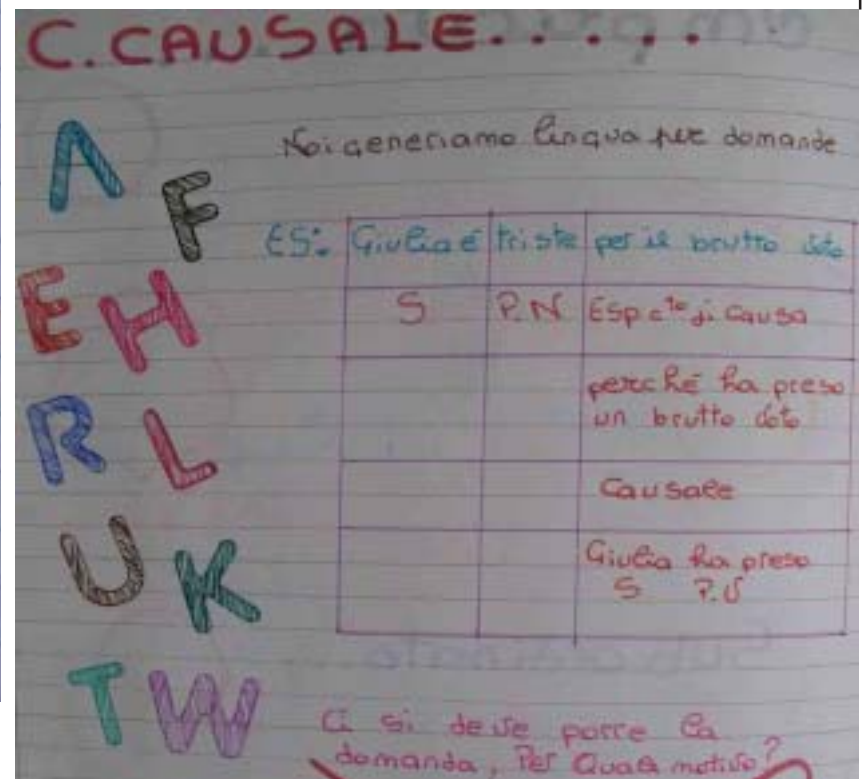 C. CAUSALE.....
Noi generiamo lingua per domande
A
F
E H
R L
U K
T W
ES: Giulia è triste per il brutto voto
S P.N Esp c.to di causa
perché ha preso
un brutto voto
Causale
Giulia ha preso
S P.V
Ci si deve porre la
domanda, Per Quale motivo?